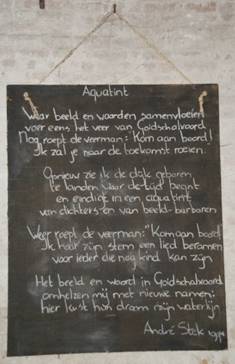 Aquatint
Waar beeld en woorden samenvloeien
voer eens het veer van Goidschalxoord
Nog roept de veerman: Kom aan boord!
Ik zal je naar de toekomst roeien.
Opnieuw zie ik de dijk geboren
te landen waar de tijd begint
en eindigt in een aquatint
van dichters en van beeld-barbaren
Weer roept de veerman: "Kom aan boord
Ik hoor zijn stem een lied beramen
voor ieder die nog kind kan zijn
Het beeld en woord in Goidschalxoord
omhelzen mij met nieuwe namen:
hier kust hun droom zijn waterlijn
André Stek 1994